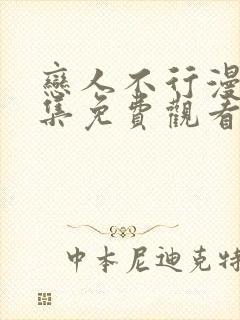 戀人不行漫
集免費觀看
中本尼迪克特